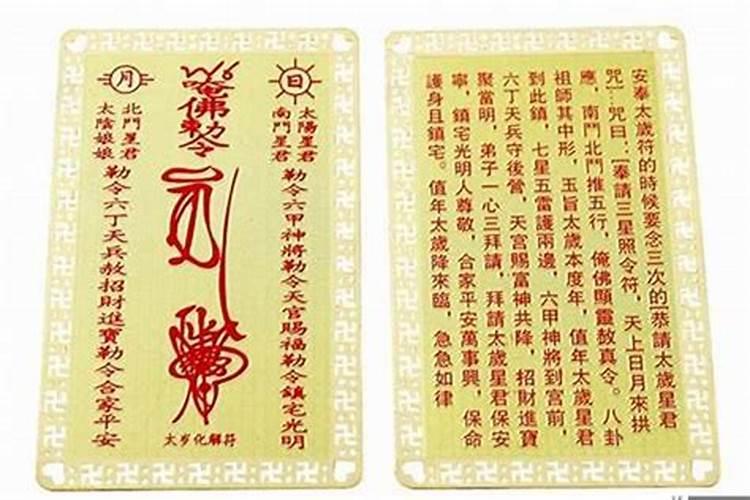 日
太陽星君
南鬥星君
勒令六甲神將勒令天官賜福勒令鎮宅光明
佛勅令
太岁化解符
月
北鬥星君
太陰娘娘
勒令六丁天兵敕招財進寶勒令合家平安
安奉太歲符的時候要念三次的[恭請太歲星君
咒]…咒曰:[奉請三星照令符,天上日月來拱
應,南鬥北鬥推五行,俺佛顯靈敖真令。八卦
祖師其中形,玉旨太歲本度年,值年太歲星君
到此鎮,七星五雷護兩邊,六甲神將到宫前,
六丁天兵守後營,天宫賜富神共降,招財進寶
聚當明,弟子一心三拜請,拜請太歲星君保安
寧,鎮宅光明人尊敬,合家平安萬事興,保命
護身且鎮宅。值年太歲降來臨,急急如律